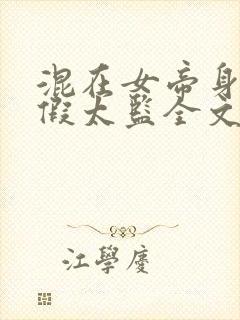 混在女帝身
假太监全文
江學慶